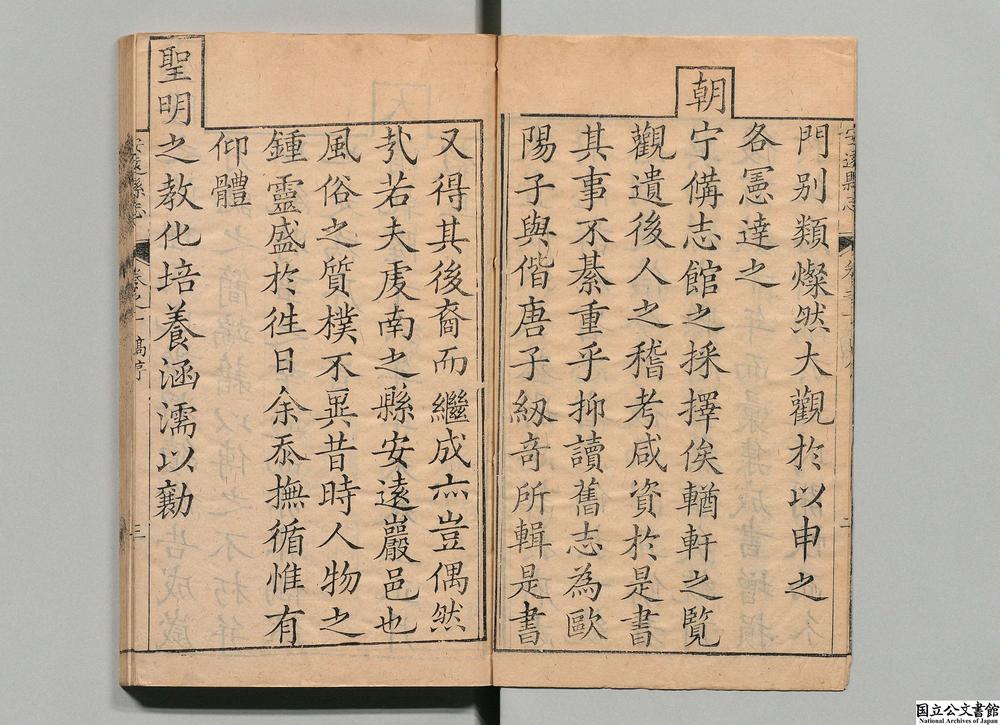 門别類燦然大觀於以申之
各憲達之
朝
宁備志館之採擇俟輶軒之覽
觀遺後人之稽考咸資於是書
其事不綦重乎抑讀舊志為歐
陽子與偕唐子紉奇所輯是書
又得其後裔而繼成亦豈偶然
㢤若夫虔南之縣安遠巖邑也
風俗之質樸不異昔時人物之
鍾靈盛於徃日余忝撫循惟有
仰體
聖明
之教化培養涵濡以勷
安遠縣志
三
国立公文書館
National Archives of Japan